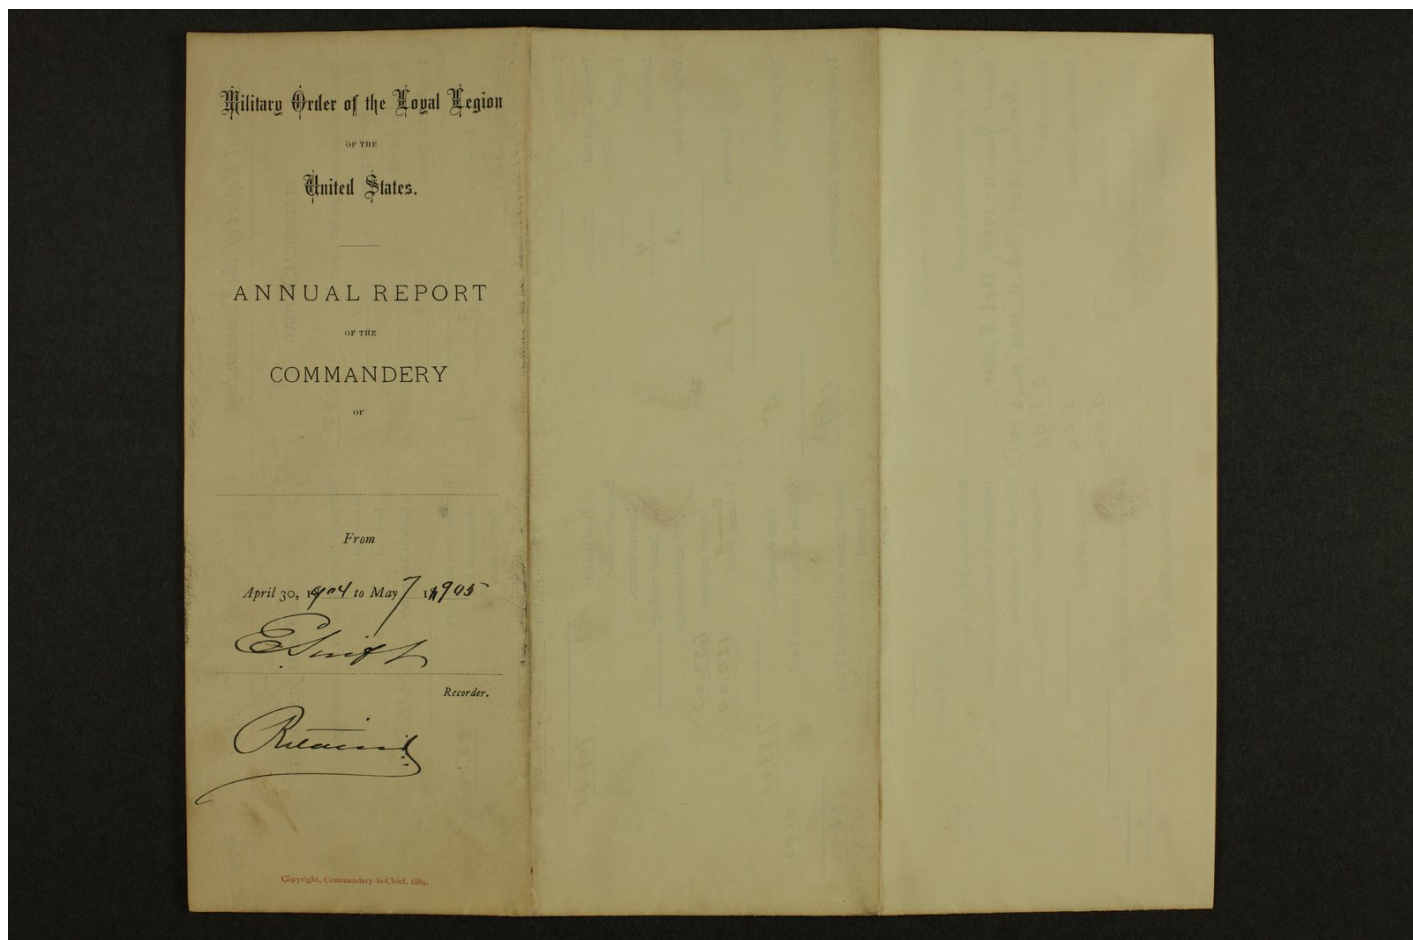 Military Order of the Loyal Legion
OF THE
United States.
ANNUAL REPORT
OF THE
COMMANDERY
OF
From
April 30, 1904 to May 7 1905
E Swift
Recorder.
Retained
Copyright, Commandery-in-Chief, 1889.